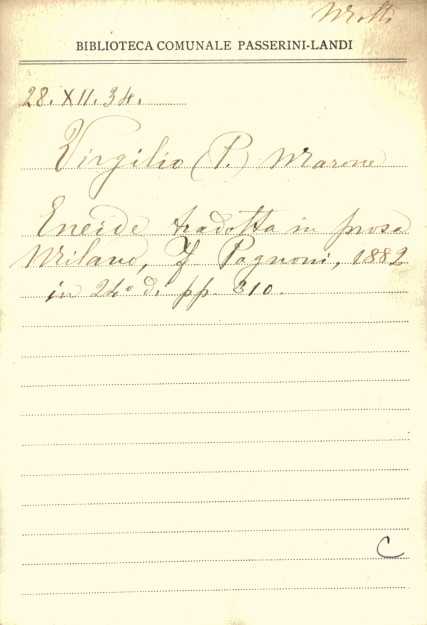 Motti
BIBLIOTECA COMUNALE PASSERINI-LANDI
28. XII. 34.
Virgilio (P.) Marone
Eneide tradotta in prosa
Milano, F. Pagnoni, 1882
in 24° di pp. 310.
C